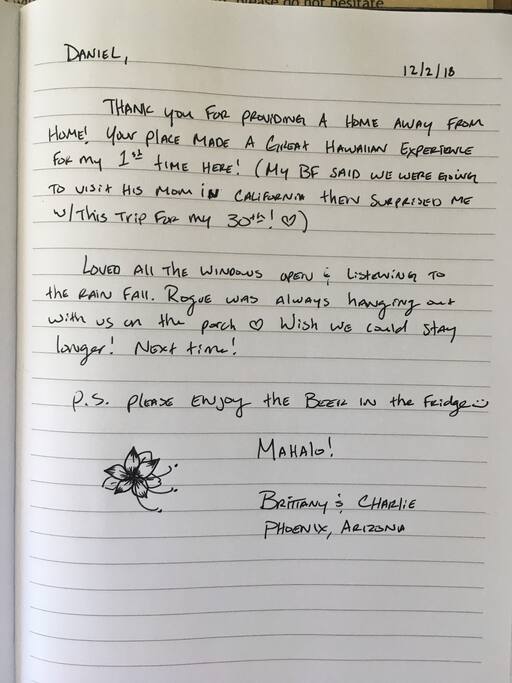 please do not hesitate
DANIEL,
12/2/18
THANK you FOR PROVIDING A HOME AWAY FROM
HOME! YOUR PLACE MADE A GREAT HAWAIIAN EXPERIENCE
FOR my 1st TIME HERE! (MY BF SAID WE WERE GOING
TO VISIT HIS MOM IN CALIFORNIA then SURPRISED ME
w/THIS TRIP FOR my 30th! ♡)
LOVED ALL THE WINDOWS OPEN & LISTENING TO
the RAIN FALL. ROGUE WAS ALWAYS hanging out
with us on the porch ♡ WISH WE could STAY
longer! NEXT time!
P.S. PLEASE ENJOY the BEER IN the FRIDGE☺
MAHALO!
BRITTANY & CHARLIE
PHOENIX, ARIZONA